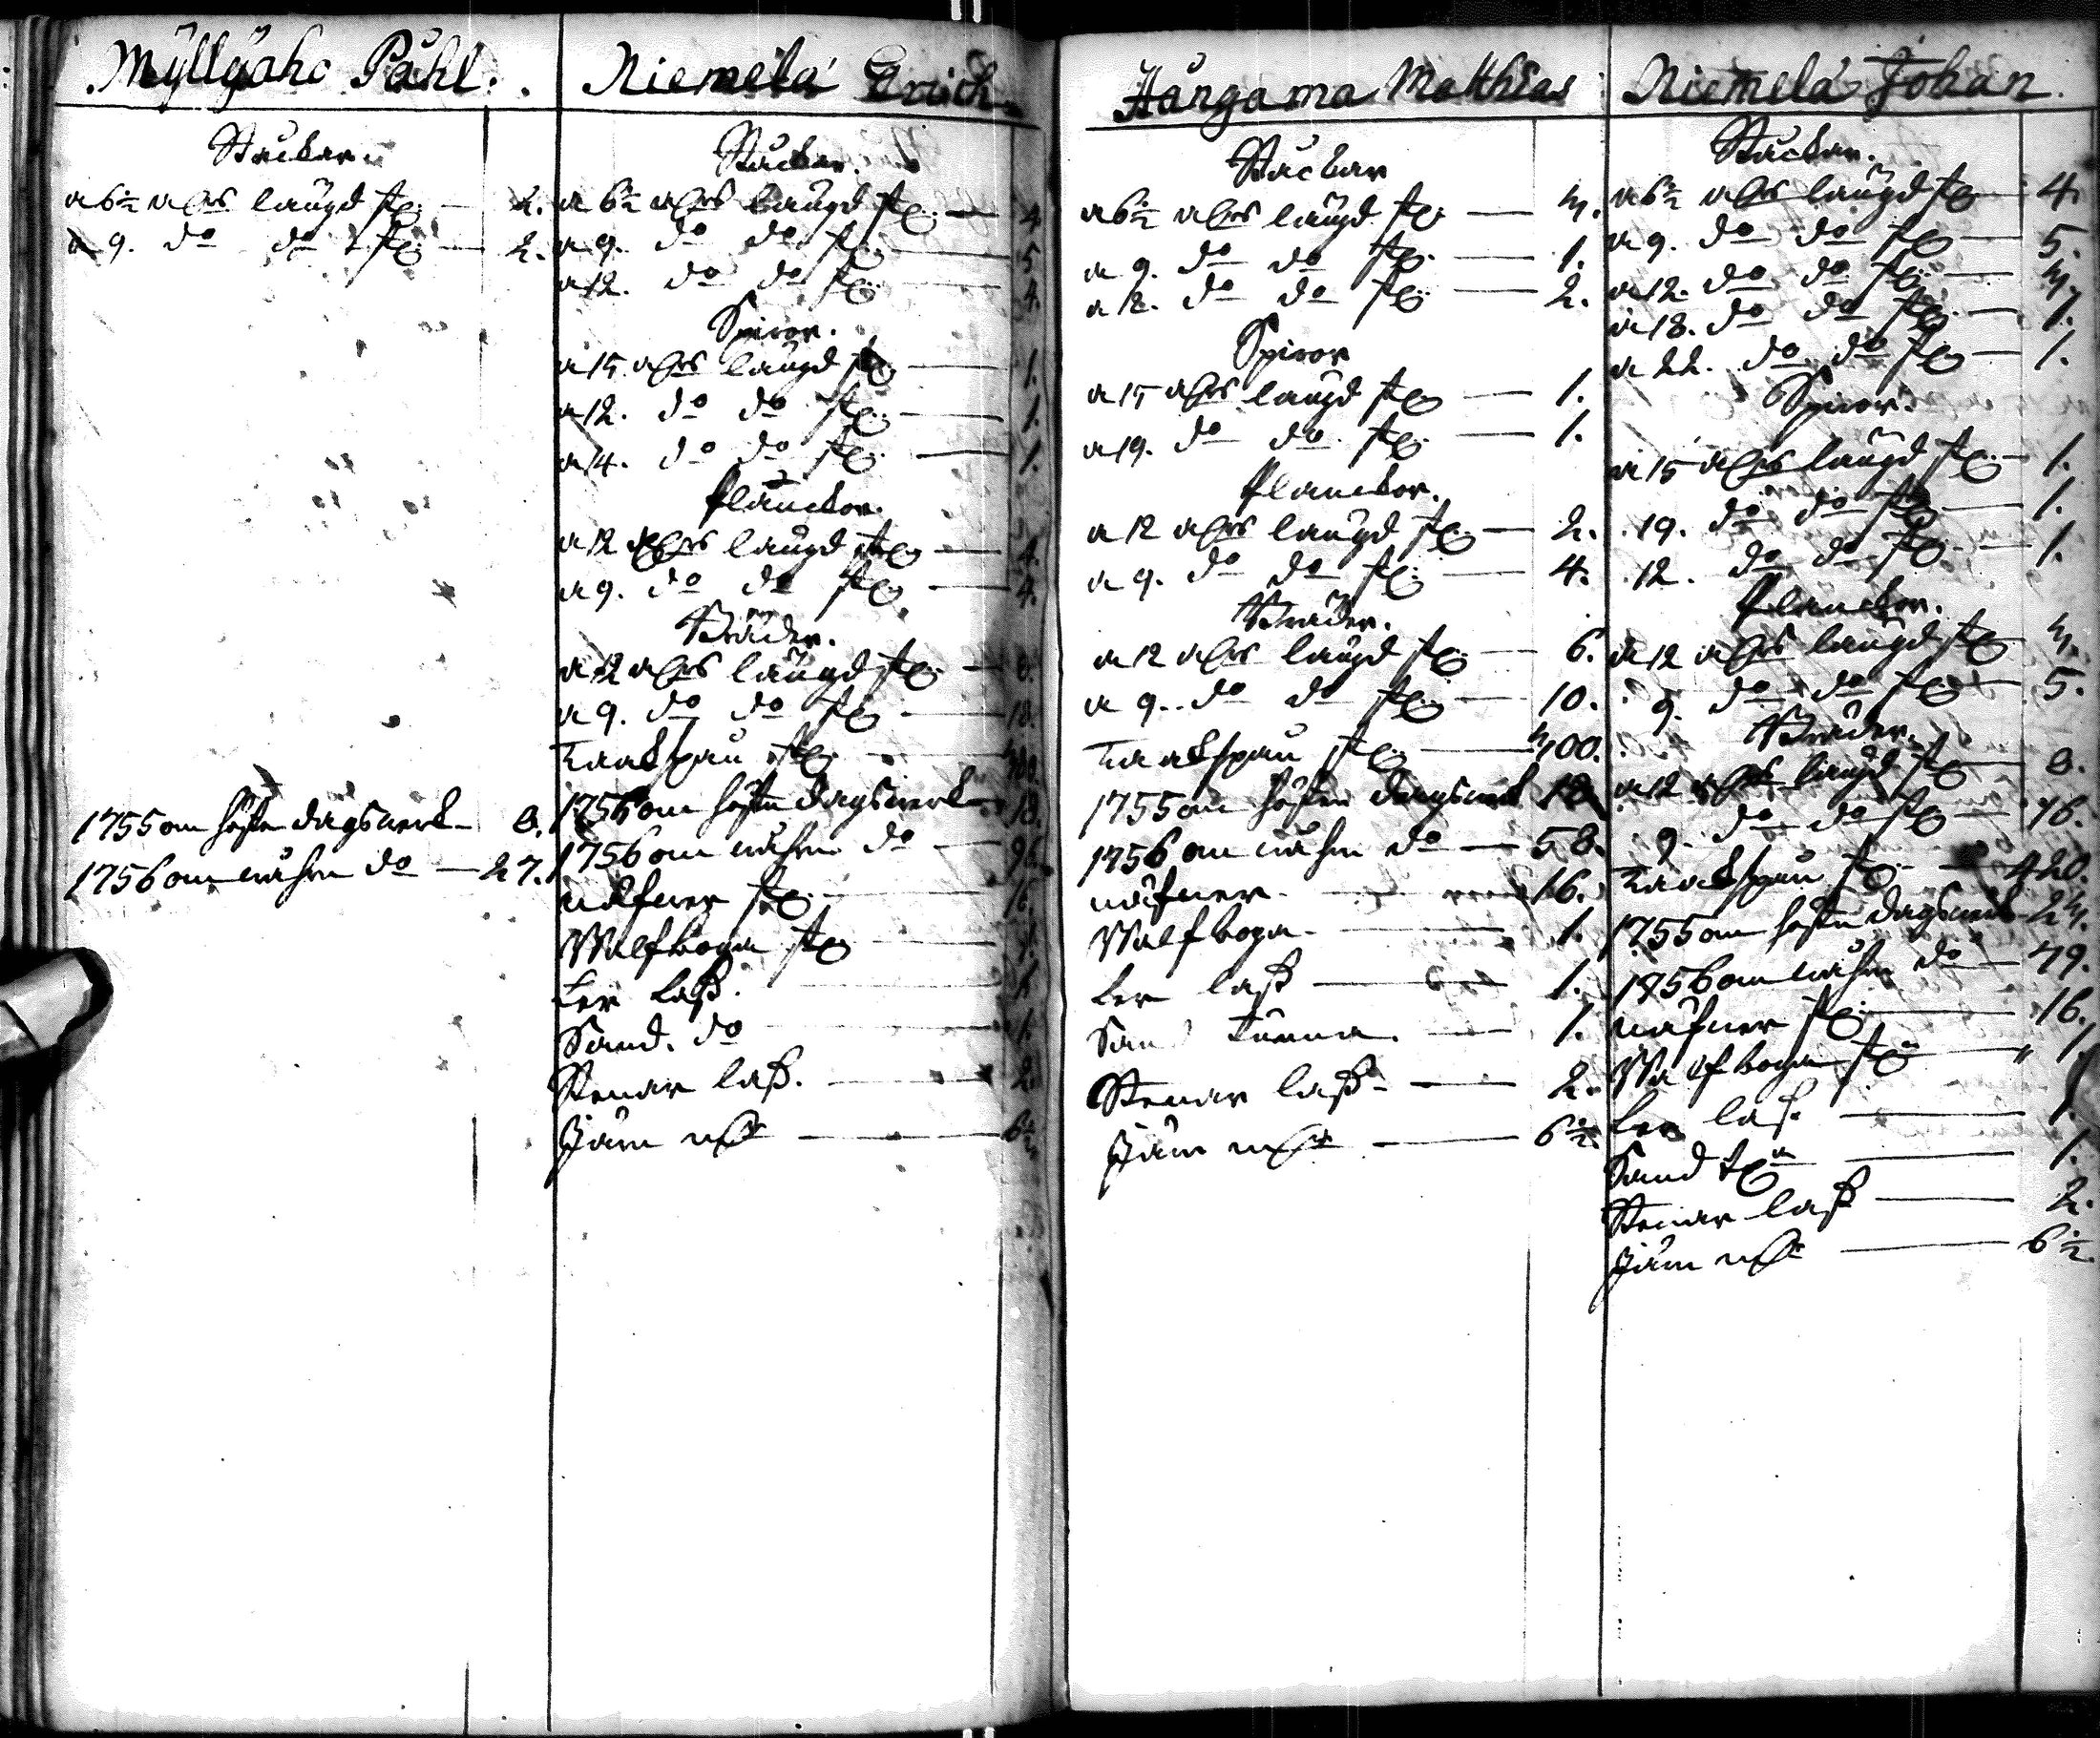 Myllyaho Påhl.
Stockar.
a 6½ alrs längd st. — 2.
a 9. do do st. — 2.
1755 om hösten dagswerk — 8.
1756 om wåhren do — 27.
Niemelä Erich
Stockar.
a 6½ alrs längd st. — 4
a 9. do do st. — 5
a 12. do do st. — 4.
Spiror.
a 15 alrs längd st. — 1.
a 12. do do st. — 1.
a 14. do do st. — 1.
Planckor.
a 12 alrs längd st. — 4.
a 9. do do st. — 4.
Bräder.
a 12 alrs längd st. — 8.
a 9. do do st. — 18.
Taakspån st.
1756 om hösten dagswerk — 18.
1756 om wåhren do — 96.
näfwer st. — 16.
Walfboga st. — 1.
Ler laß. — 1.
Sand. do — 1.
Stenar laß. — 2.
Järn — 6½
Hångama Matthias
Stockar
a 6½ alrs längd st. — 3.
a 9. do do st. — 1.
a 12. do do st. — 2.
Spiror
a 15 alrs längd st. — 1.
a 19. do do st. — 1.
Planckor.
a 12 alrs längd st. — 2.
a 9. do do st. — 4.
Bräder.
a 12 alrs längd st. — 6.
a 9. do do st. — 10.
Taakspån st. — 300.
1755 om hösten dagswerk 18
1756 om wåhren do — 58.
näfwer — 16.
Walfboga — 1.
Ler laß — 1.
Sand Tunna. — 1.
Stenar laß — 2.
Järn — 6½
Niemelä Johan
Stockar.
a 6½ alrs längd st. — 4.
a 9. do do st. — 5.
a 12. do do st. — 3.
a 18. do do st. — 1.
a 22. do do st. — 1.
Spiror.
a 15 alrs längd st. — 1.
19. do do st. — 1.
12. do do st. — 1.
Planckor.
a 12 alrs längd st. 3.
9. do do st. — 5.
Bräder.
a 12 alrs längd st. — 8.
9. do do st. — 16.
Taakspån st. — 420.
1755 om hösten dagswerk 23.
1756 om wåhren do — 79.
näfwer st. — 16.
Walfboga st. — 1.
Ler laß. — 1.
Sand — 1.
Stenar laß — 2.
Järn — 6½